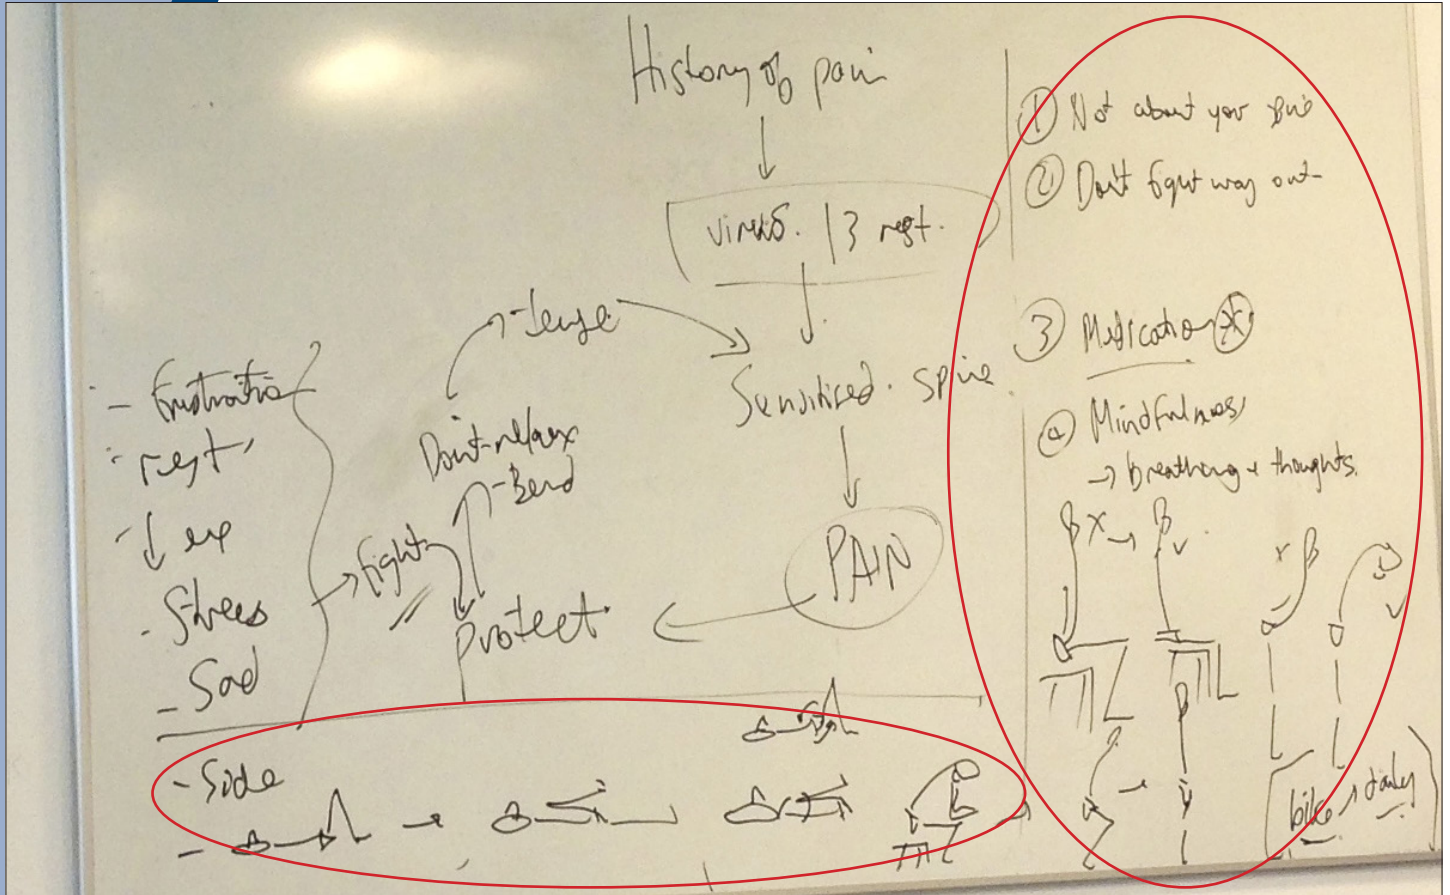 History of pain
virus. 3 rest.
Sensitised. Spine
PAIN
Protect
Don't relax
- Bend
- tense
fight
- frustration
- rest
- ↓ ex
- Stress
- Sad
- Side
① Not about your spine
② Don't fight way out
③ Medication
④ Mindfulness
→ breathing + thoughts.
bike daily